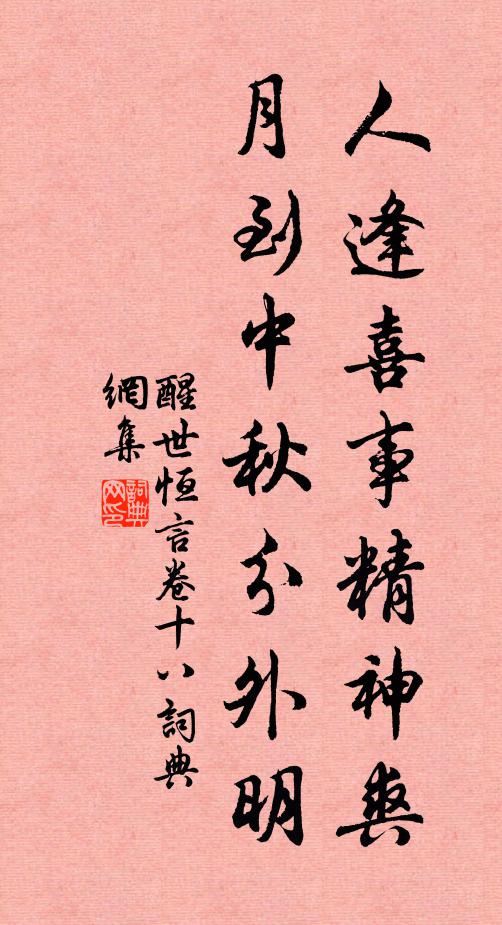 人逢喜事精神爽
月到中秋分外明
醒世恒言卷十八詞典
網集
詞典
网印